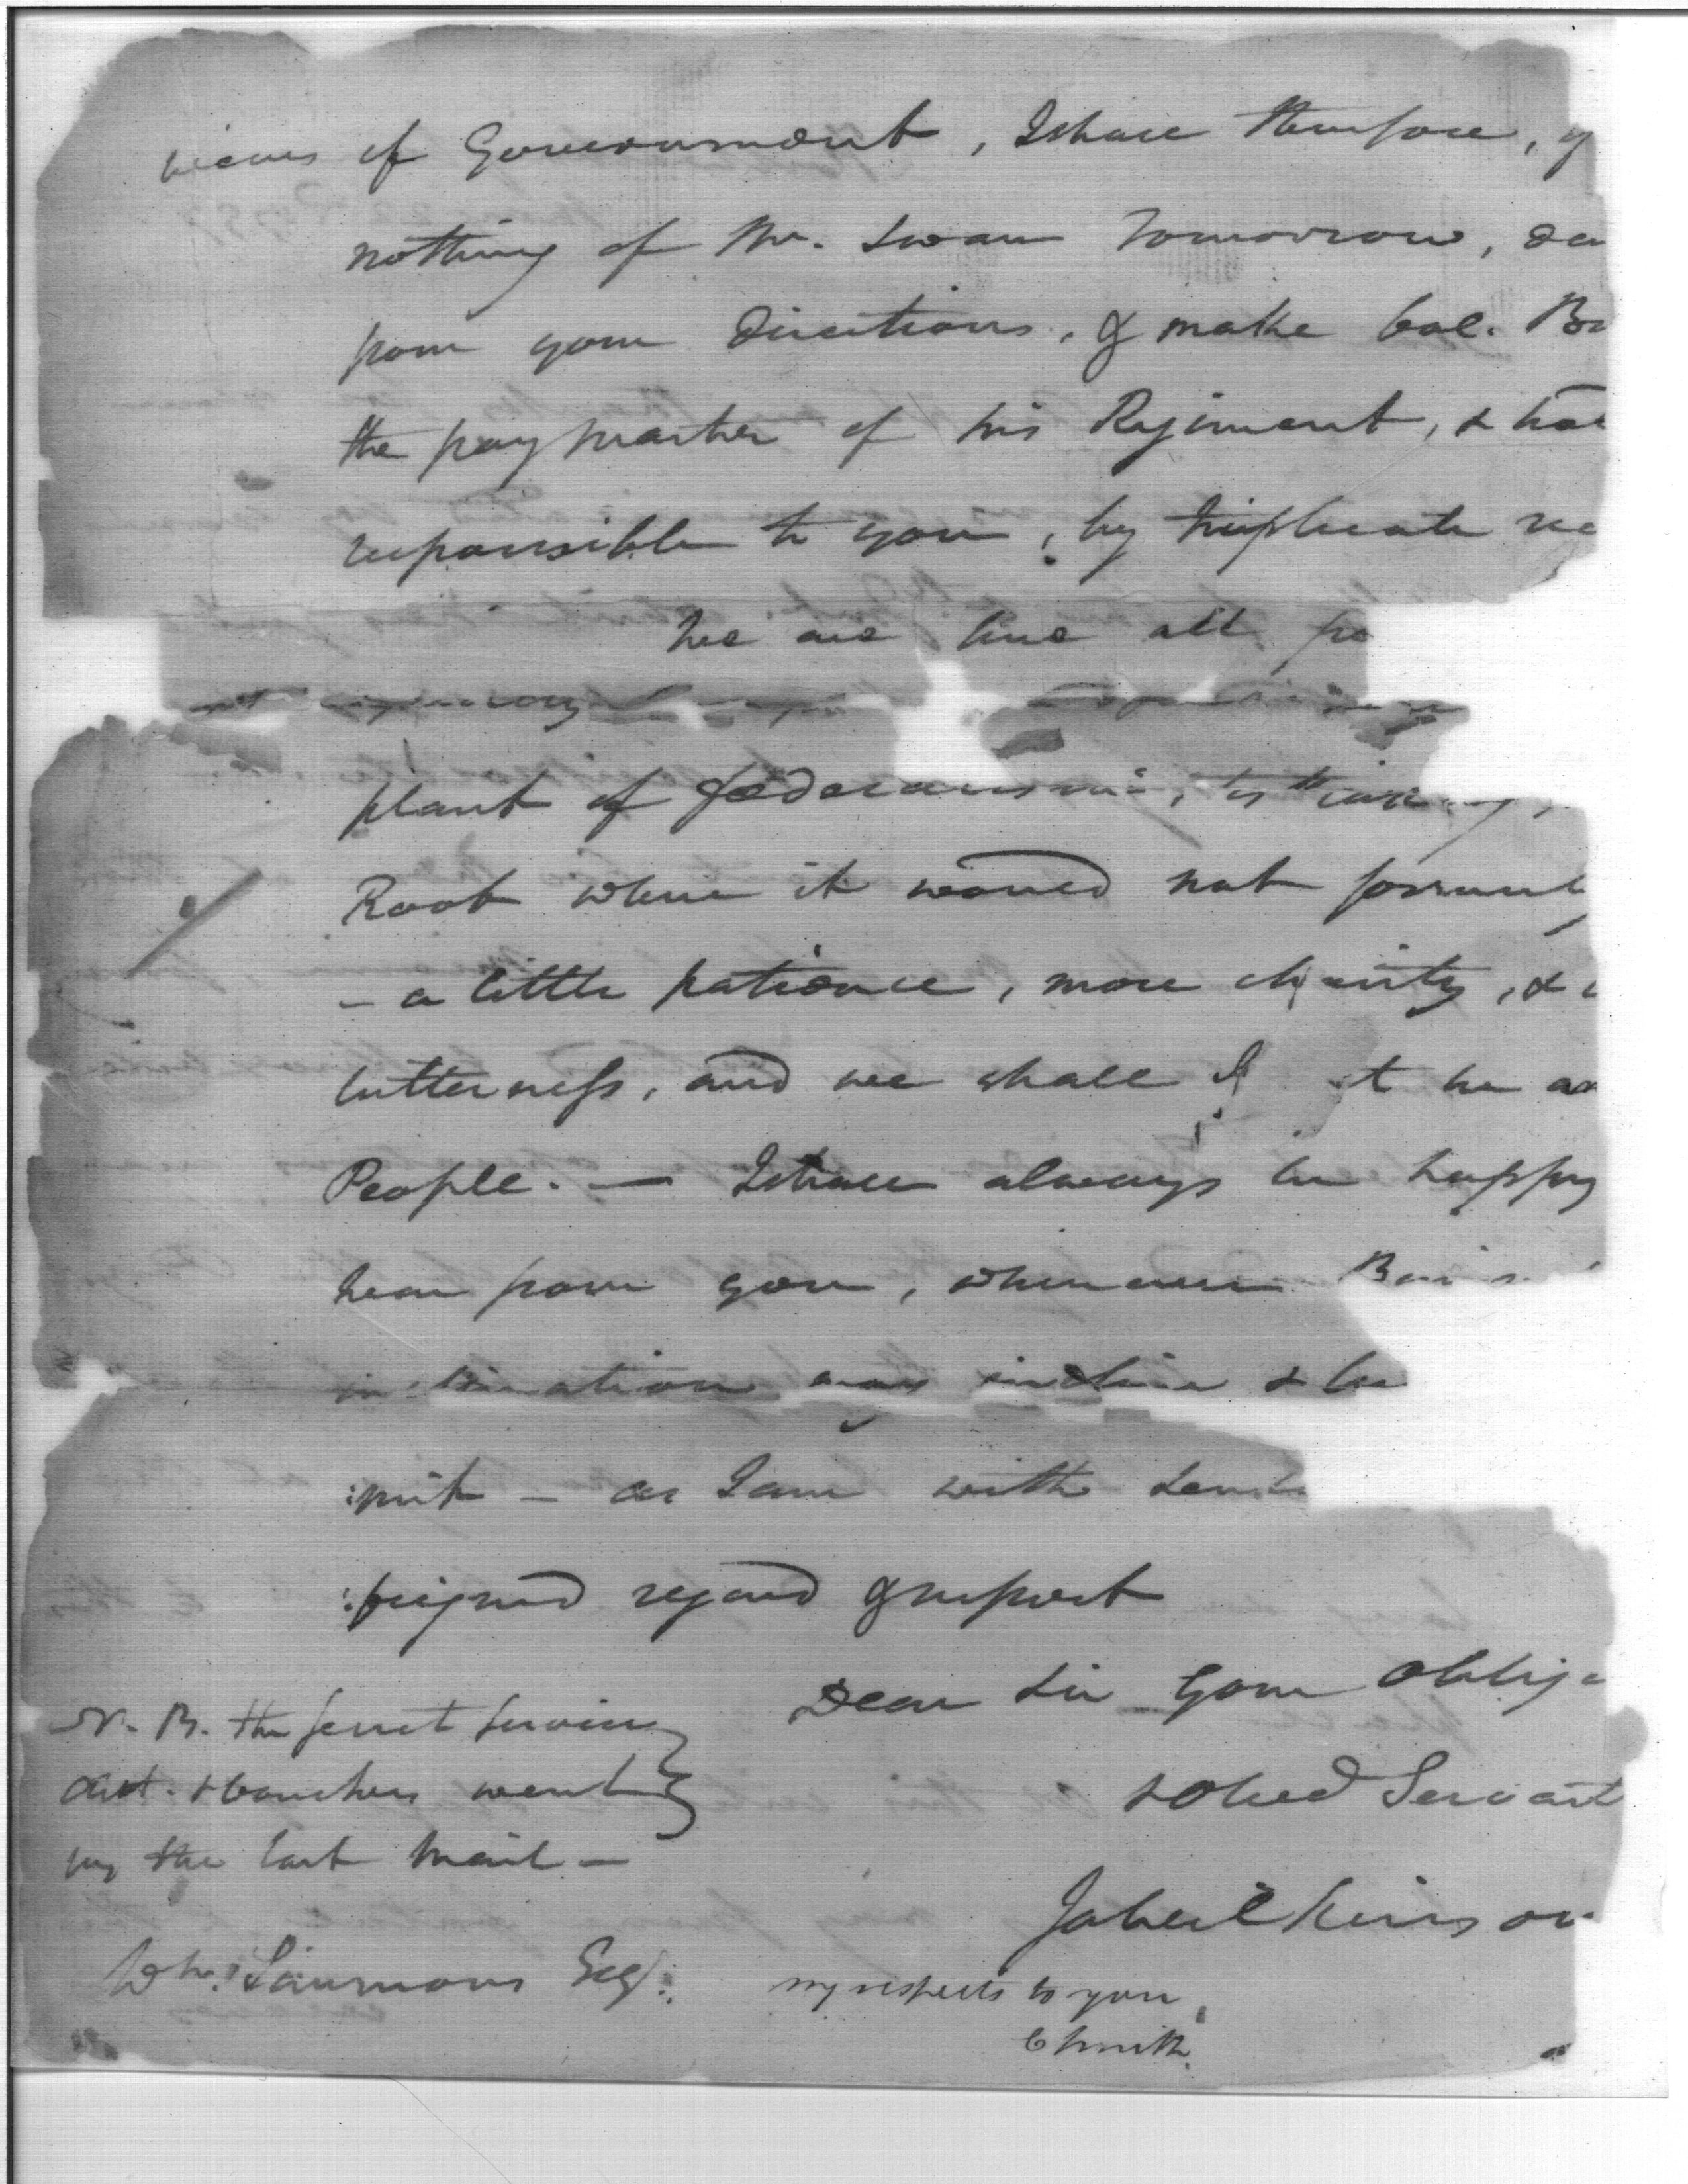 views of Government, I shall therefore, if
nothing of Mr. Swan Tomorrow, de
from your Directions, & make Col.
the pay master of his Regiment, &
responsible to you, by triplicate re
We are here all fe
plant of foederalism, is
Root where it would not formerly
– a little patience, more charity, &
bitterness, and we shall be
People. — I shall always be happy
hear from you, whenever
inclination may incline & le
:mit – as I am with
:feigned regard & respect
Dear Sir Your oblig
& Obed Servant
N. B. the secret service
acct. & vouchers went
by the last Mail –
Ja Wilkinson
Wm. Simmons Esq:
my respects to you,
C Smith.